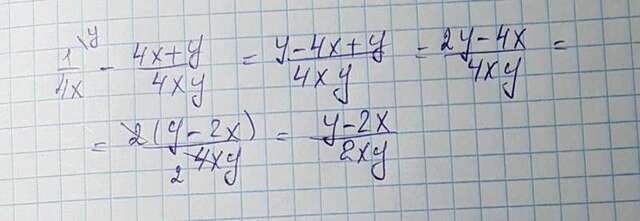 1/4x \y - 4x+y/4xy = y-4x+y/4xy = 2y-4x/4xy =
= 2(y-2x)/2 4xy = y-2x/2xy